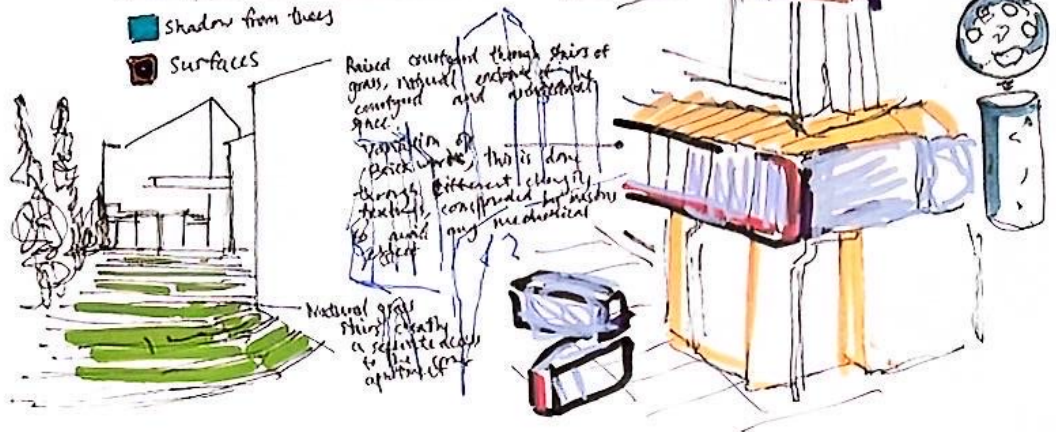 Shadow from trees
Surfaces
Raised courtyard through stairs of
grass, natural enclosure of the
courtyard and
space.
Variation of
Brick works, this is done
through different
textures, constructed by masons
to avoid any mechanical
Natural grass
stairs, creating
a separate access
to the